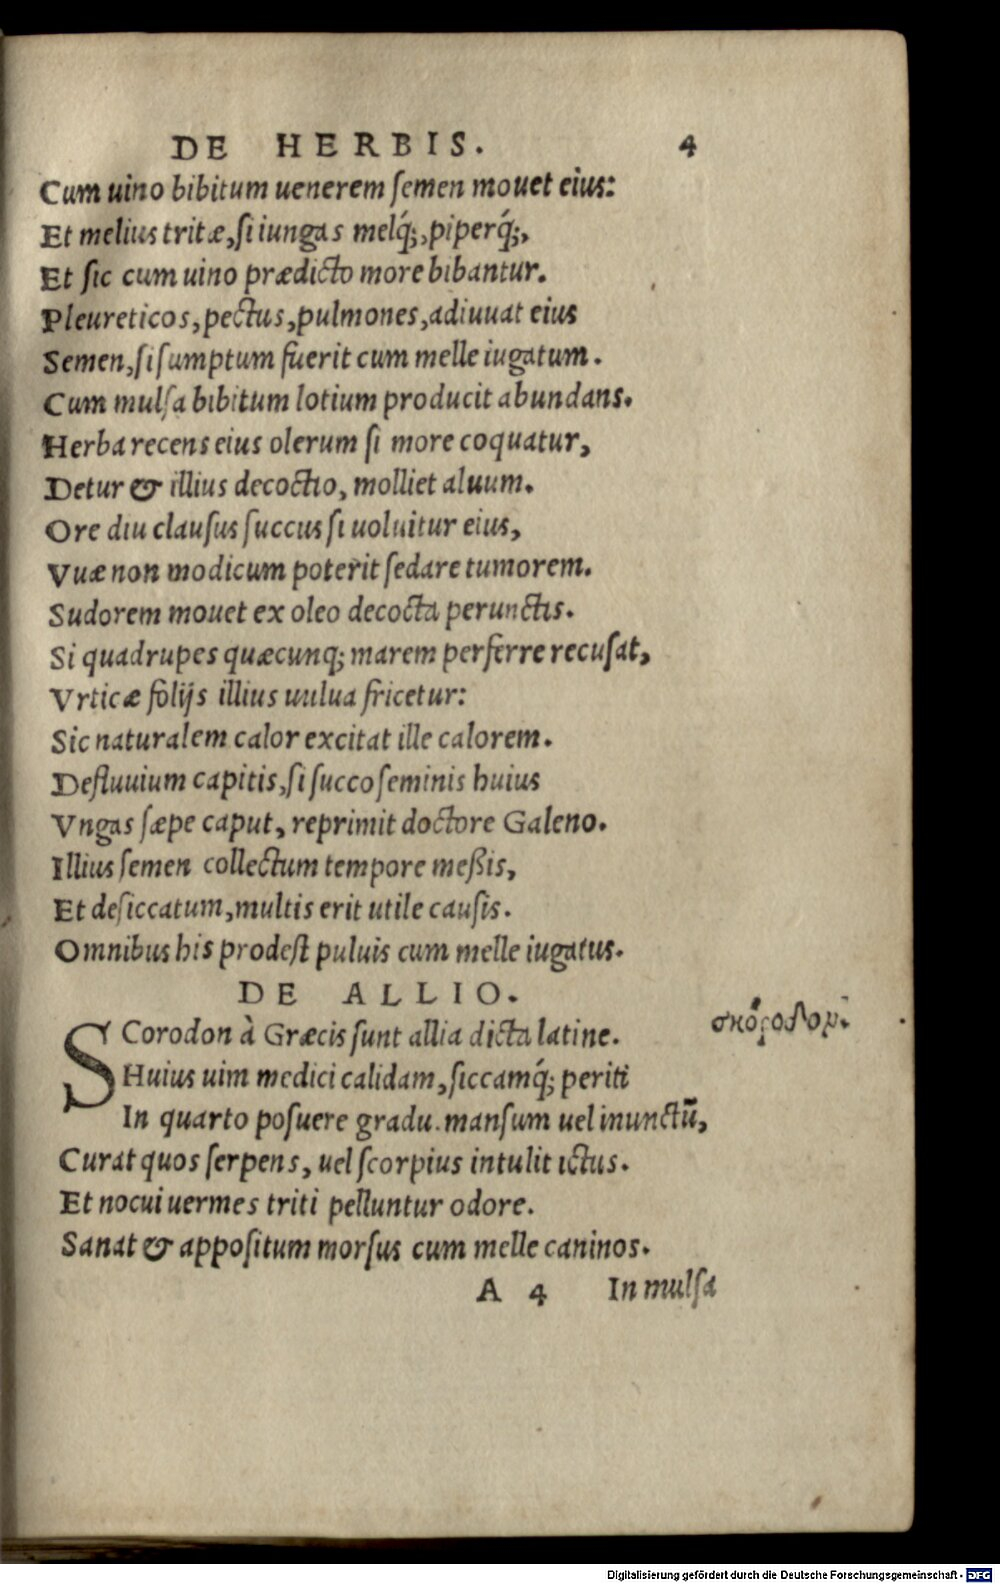 DE HERBIS. 4
Cum uino bibitum uenerem ſemen mouet eius:
Et melius tritæ, ſi iungas melq́;, piperq́;,
Et ſic cum uino prædicto more bibantur.
Pleureticos, pectus, pulmones, adiuuat eius
Semen, ſi ſumptum fuerit cum melle iugatum.
Cum mulſa bibitum lotium producit abundans.
Herba recens eius olerum ſi more coquatur,
Detur & illius decoctio, molliet aluum.
Ore diu clauſus ſuccus ſi uoluitur eius,
Vuæ non modicum poterit ſedare tumorem.
Sudorem mouet ex oleo decocta perunctis.
Si quadrupes quæcunq; marem perferre recuſat,
Vrticæ folijs illius uulua fricetur:
Sic naturalem calor excitat ille calorem.
Defluuium capitis, ſi ſucco ſeminis huius
Vngas ſæpe caput, reprimit doctore Galeno.
Illius ſemen collectum tempore meßis,
Et deſiccatum, multis erit utile cauſis.
Omnibus his prodeſt puluis cum melle iugatus.
DE ALLIO.
SCorodon à Græcis ſunt allia dicta latine. σκόροδον.
Huius uim medici calidam, ſiccamq́; periti
In quarto poſuere gradu. manſum uel inunctū,
Curat quos ſerpens, uel ſcorpius intulit ictus.
Et nocui uermes triti pelluntur odore.
Sanat & appoſitum morſus cum melle caninos.
A 4 In mulſa
Digitalisierung gefördert durch die Deutsche Forschungsgemeinschaft - DFG